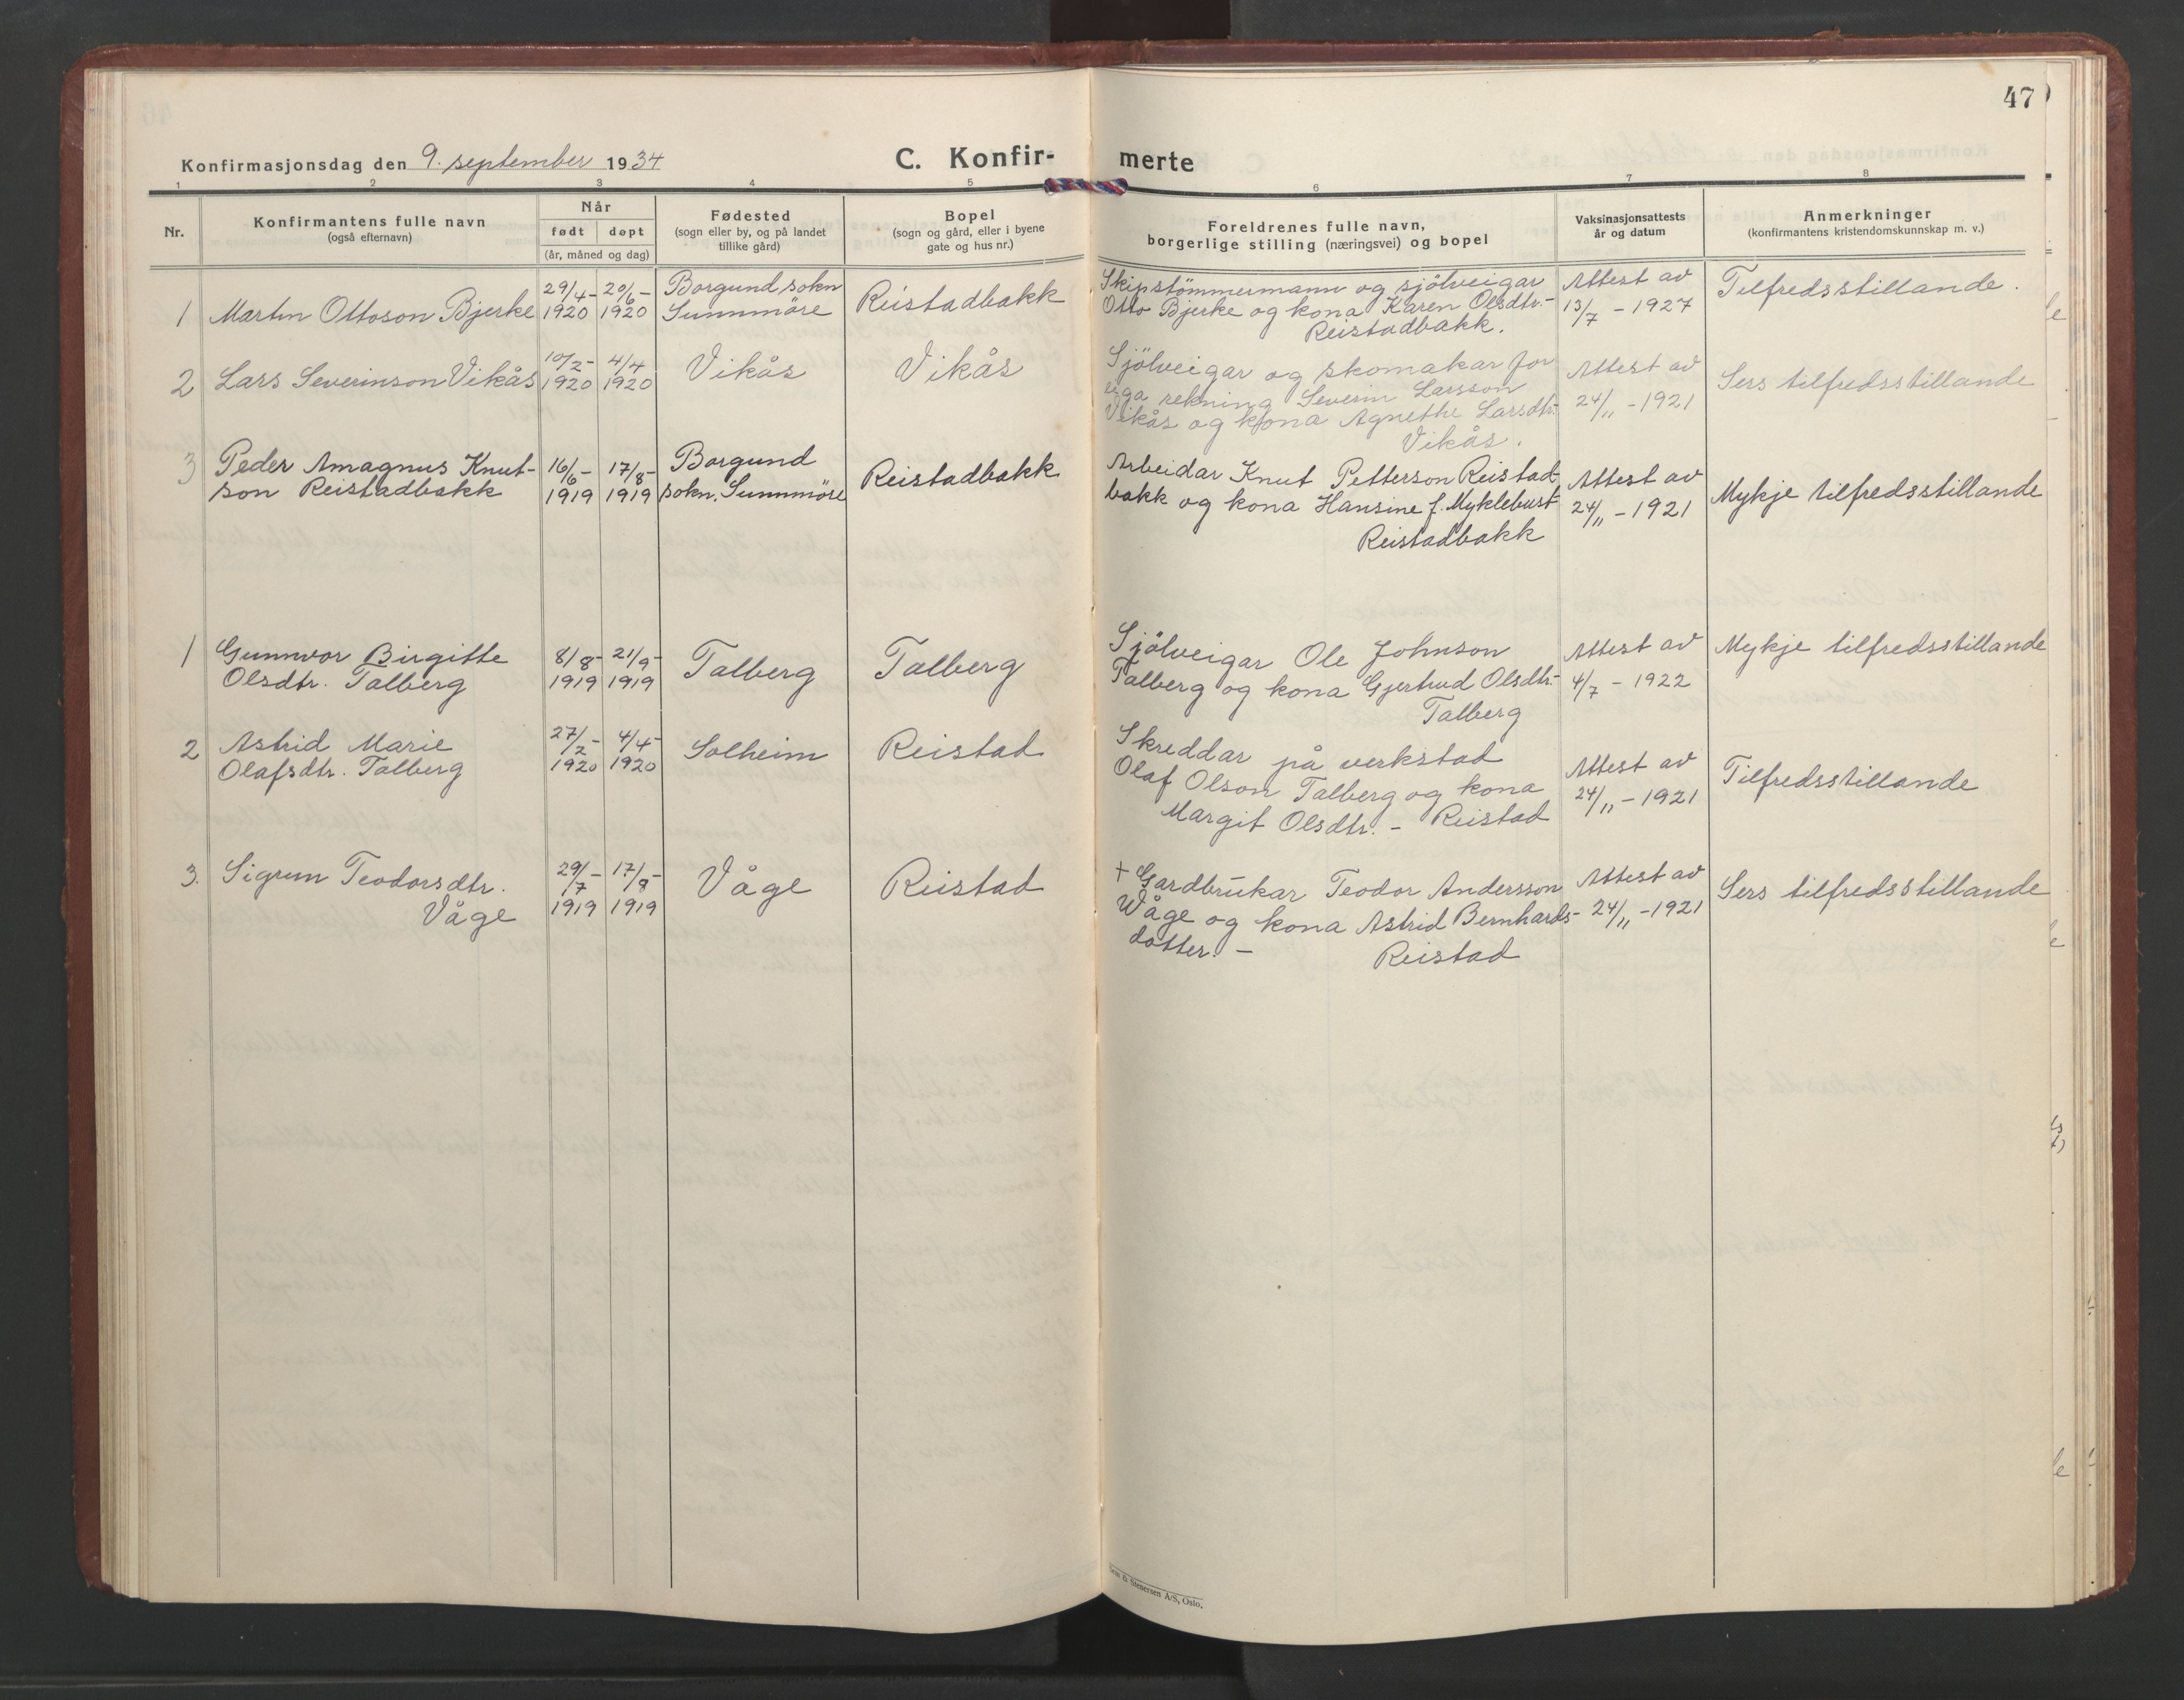 47
Konfirmasjonsdag den 9. september 1934
C. Konfir- merte
1 2 3 4 5 6 7 8
Nr.
Konfirmantens fulle navn
(også efternavn)
Når
født døpt
(år, måned og dag)
Fødested
(sogn eller by, og på landet
tillike gård)
Bopel
(sogn og gård, eller i byene
gate og hus nr.)
Foreldrenes fulle navn,
borgerlige stilling (næringsvei) og bopel
Vaksinasjonsattests
år og datum
Anmerkninger
(konfirmantens kristendomskunnskap m. v.)
1 Martin Ottoson Bjerke
29/4- 1920
20/6- 1920
Borgund sokn
Sunnmöre
Reistadbakk
Skipstömmermann og sjölveigar
Otto Bjerke og kona Karen Olsdtr.-
Reistadbakk.
Attest av
13/7 - 1927
Tilfredsstillande.
2 Lars Severinson Vikås
10/2- 1920
4/4 1920
Vikås
Vikås
Sjölveigar og skomakar for
eiga rekning Severin Larsson
Vikås og kona Agnethe Larsdtr.
Vikås.
Attest av
24/11 - 1921
Sers tilfredsstillande
3 Peder Amagnus Knut-
son Reistadbakk
16/6- 1919
17/8- 1919
Borgund
sokn. Sunnmöre
Reistadbakk
Arbeidar Knut Petterson Reistad-
bakk og kona Hansine f. Myklebust
Reistadbakk
Attest av
24/11 - 1921
Mykje tilfredsstillande
1 Gunnvor Birgitte
Olsdtr. Talberg
8/8- 1919
21/9- 1919
Talberg
Talberg
Sjölveigar Ole Johnson
Talberg og kona Gjertrud Olsdtr.-
Talberg
Attest av
4/7 - 1922
Mykje tilfredsstillande
2 Astrid Marie
Olafsdtr. Talberg
27/2- 1920
4/4- 1920
Solheim
Reistad
Skreddar på verkstad
Olaf Olson Talberg og kona
Margit Olsdtr. - Reistad
Attest av
24/11 - 1921
Tilfredsstillande
3. Sigrun Teodorsdtr.
Våge
29/7- 1919
17/8- 1919
Våge
Reistad
+ Gardbrukar Teodor Andersson
Våge og kona Astrid Bernhards-
dotter. -
Reistad
Attest av
24/11 - 1921
Sers tilfredsstillande
& Stenersen A/S, Oslo.